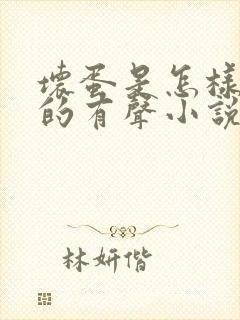 壞蛋是怎樣
的有聲小説
林妍偕